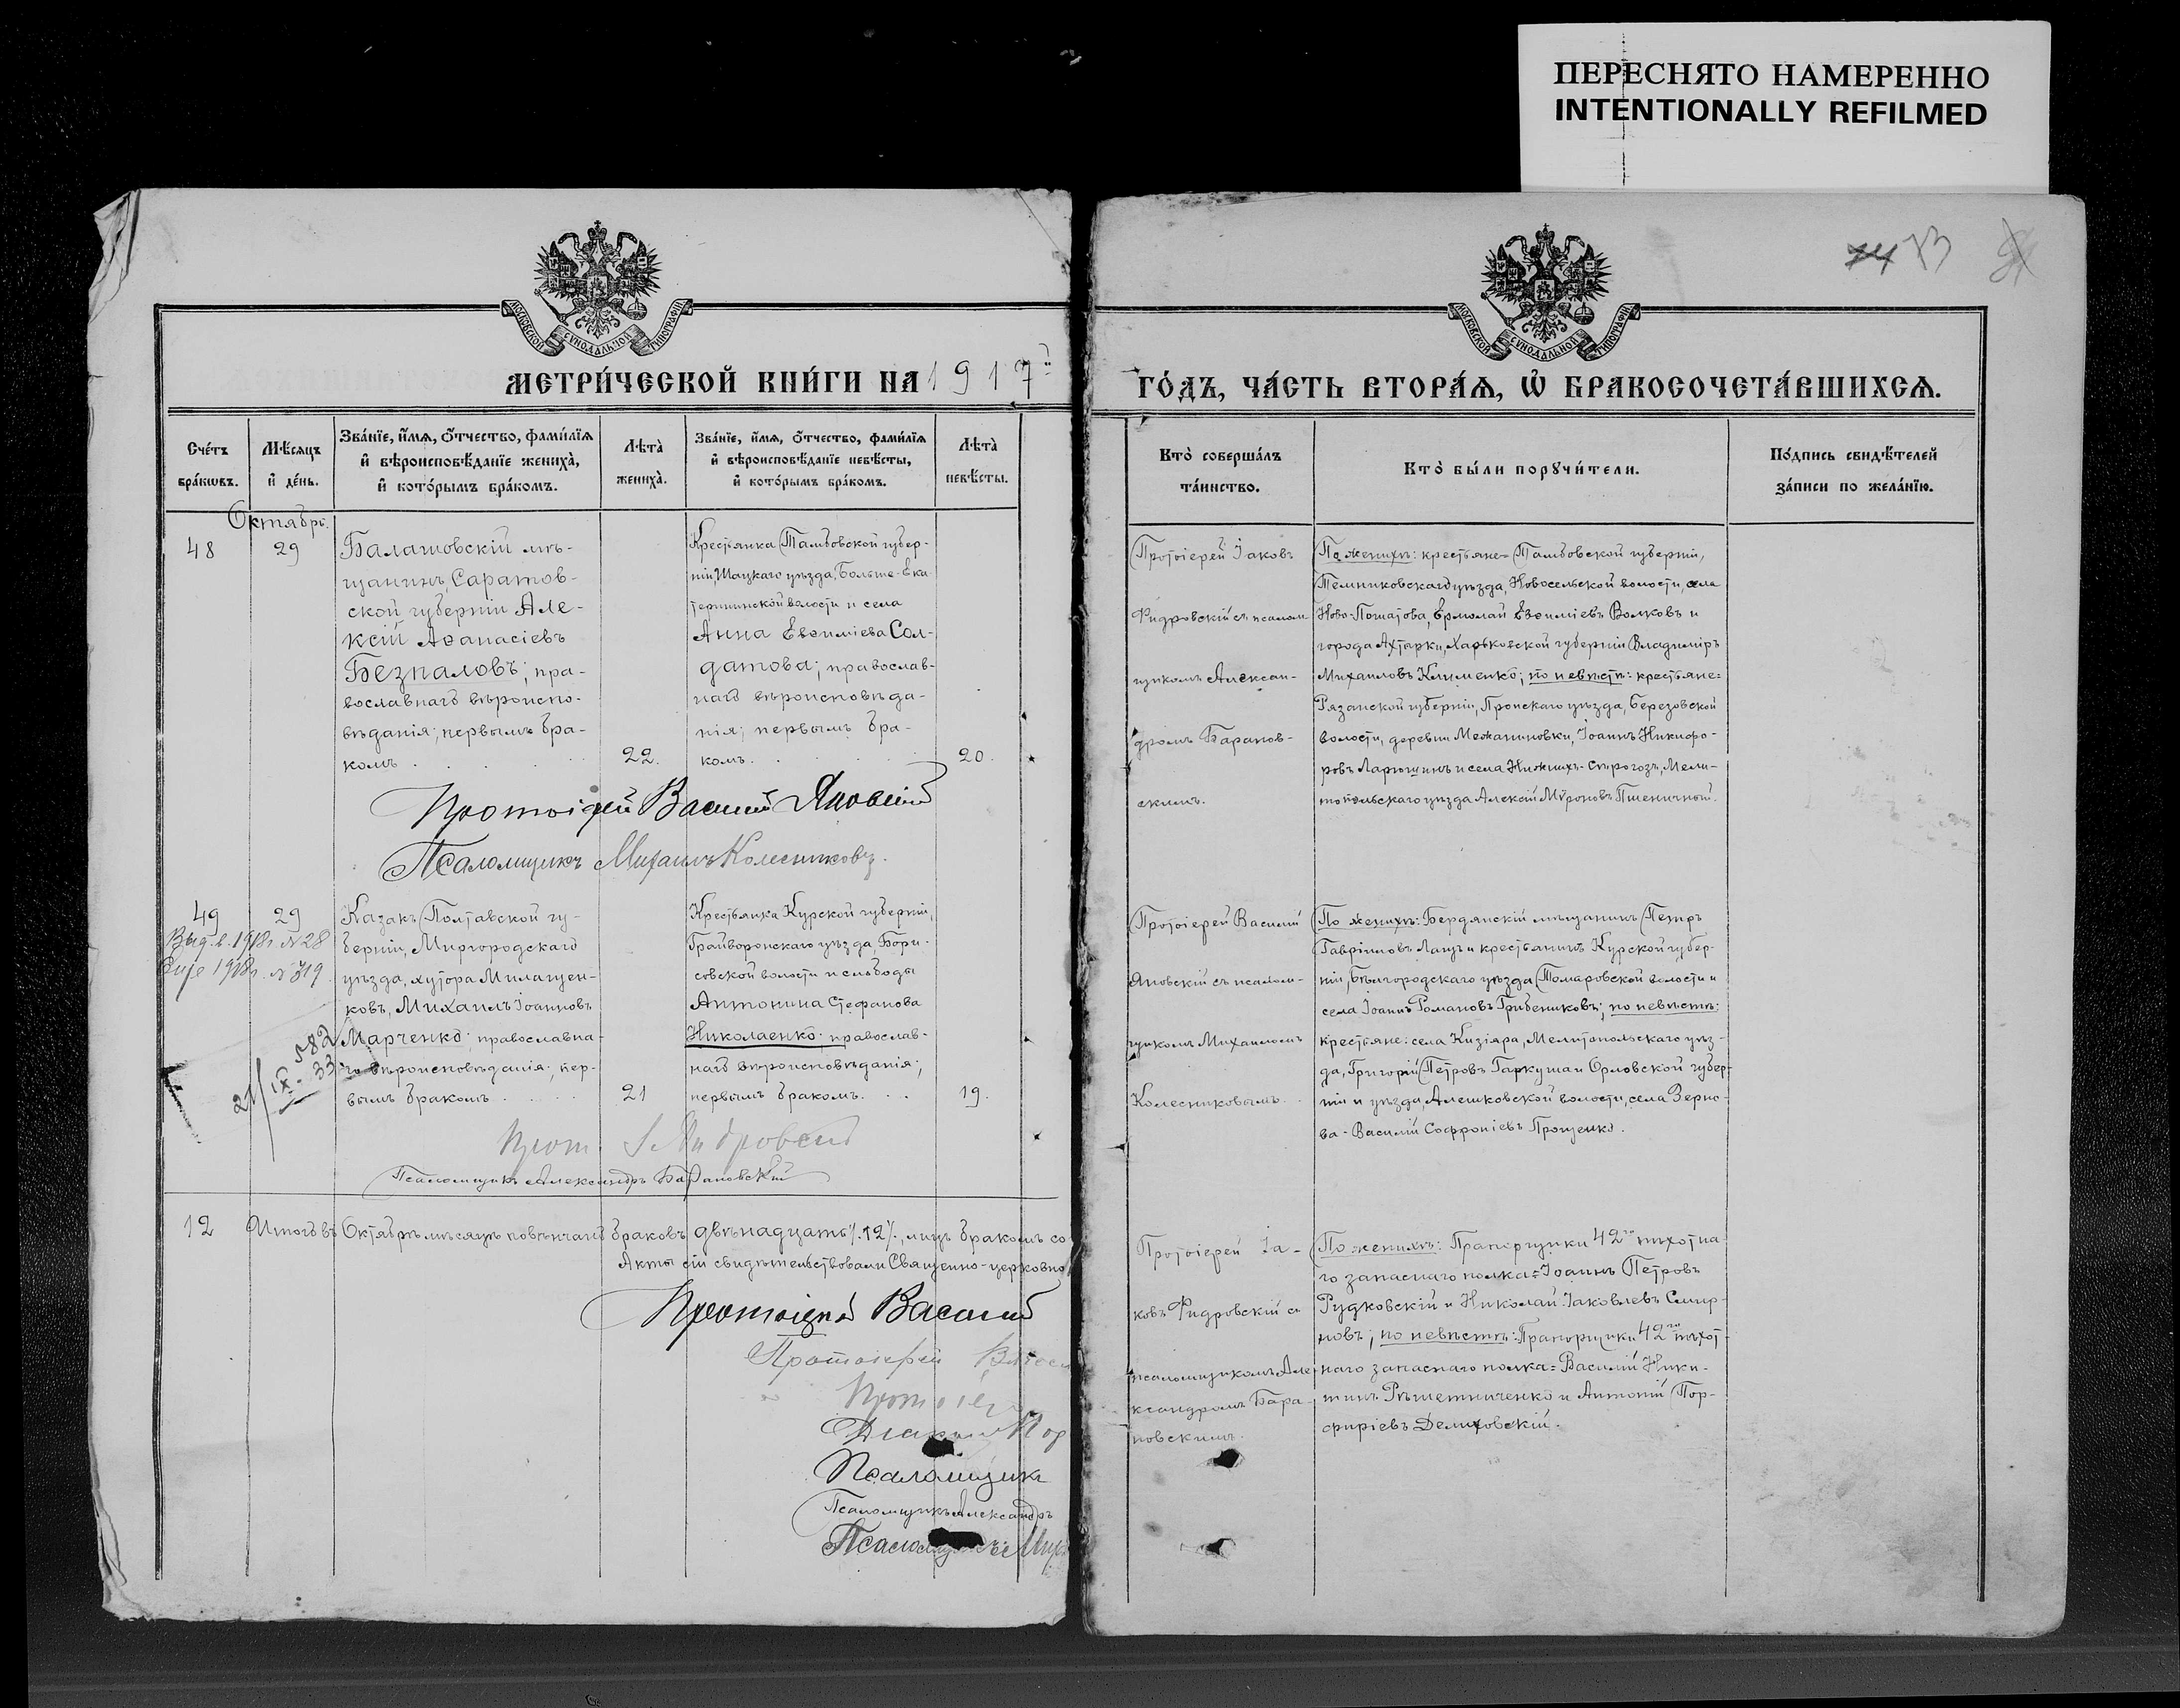 ПЕРЕСНЯТО НАМЕРЕННО
INTENTIONALLY REFILMED
74 73
МОСКОВСКОЙ СѴНОДАЛЬНОЙ ТИПОГРАФІИ
МОСКОВСКОЙ СѴНОДАЛЬНОЙ ТИПОГРАФІИ
МЕТРИ́ЧЕСКОЙ КНИ́ГИ НА 1917й
ГО́ДЪ, ЧА́СТЬ ВТОРА́Я, Ѡ҆ БРАКОСОЧЕТА́ВШИХСЯ.
Сче́тъ
бра́ковъ.
Мѣ́сяцъ
и҆ де́нь.
Зва́нїе, и҆́мя, ѻ҆́тчество, фами́лїя
и҆ вѣроисповѣ́данїе жениха̀,
и҆ кото́рымъ бра́комъ.
Лѣта̀
жениха̀.
Зва́нїе, и҆́мя, ѻ҆́тчество, фами́лїя
и҆ вѣроисповѣ́данїе невѣ́сты,
и҆ кото́рымъ бра́комъ.
Лѣта̀
невѣ́сты.
Кто̀ соверша́лъ
та́инство.
Кто̀ бы́ли порꙋчи́тели.
По́дпись свидѣ́телей
за́писи по жела́нїю.
Октябрь.
48
29
Балашовскій мѣ-
щанинъ, Саратов-
ской губерніи Але-
ксій Аѳанасіевъ
Безпаловъ; пра-
вославнаго вѣроиспо-
вѣданія; первымъ бра-
комъ
22.
Крестьянка Тамбовской губер-
ніи, Шацкаго уѣзда, Больше-Ека-
терининской волости и села
Анна Евѳиміева Сол-
датова; православ-
наго вѣроисповѣда-
нія; первымъ бра-
комъ.
20.
Протоіерей Іаковъ
Фидровскій съ псалом-
щикомъ Алексан-
дромъ Баранов-
скимъ.
По женихѣ: крестьяне= Тамбовской губерніи,
Темниковскаго уѣзда, Новосельской волости, села
Ново-Поташова, Ермолай Евѳиміевъ Волковъ и
города Ахтырки, Харьковской губерніи Владиміръ
Михаиловъ Клименко; по невѣстѣ: крестьяне=
Рязанской губерніи, Пронскаго уѣзда, Березовской
волости, деревни Межаниновки, Іоаннъ Никифо-
ровъ Ларюшинъ и села Нижнихъ-Сѣрогозъ, Мели-
топольскаго уѣзда Алексій Мѵроновъ Пшеничный.
Протоіерей Василій Яновскій
Псаломщикъ Михаилъ Колесниковъ.
49
29
Выд. в. 1918г. № 28
Еще 1918г. № 319
582
21/IX-33
Казакъ Полтавской гу-
берніи, Миргородскаго
уѣзда, хутора Милащен-
ковъ, Михаилъ Іоанновъ
Марченко; православна-
го вѣроисповѣданія; пер-
вымъ бракомъ
21
Крестьянка Курской губерніи,
Грайворонскаго уѣзда Бори-
совской волости и слободы
Антонина Стефанова
Николаенко; православ-
наго вѣроисповѣданія;
первымъ бракомъ.
19.
Протоіерей Василій
Яновскій съ псалом-
щикомъ Михаиломъ
Колесниковымъ.
По женихѣ: Бердянскій мѣщанинъ Петръ
Гавріиловъ Лацъ и крестьянинъ Курской губер-
ніи, Бѣлгородскаго уѣзда Томаровской волости и
села Іоаннъ Романовъ Грибениковъ; по невѣстѣ:
крестьяне: села Кизіяра, Мелитопольскаго уѣз-
да, Григорій Петровъ Гаркуша и Орловской губер-
ніи и уѣзда, Алешковской волости, села Зерно-
ва - Василій Софроніевъ Прощенко.
Прот. І. Фидровскій
Псаломщикъ Александръ Барановскій
12
Итого въ Октябрѣ мѣсяцѣ повѣнчано браковъ двѣнадцать /.12/., лицъ бракомъ со
Акты сіи свидѣтельствовали Священно-церковно
Протоіерей Василій
Протоіерей
Протоіер
Псаломщикъ
Псаломщикъ Александръ
Псаломщикъ Мих
Протоіерей Іа-
ковъ Фидровскій съ
псаломщикомъ Але-
ксандромъ Бара-
новскимъ.
По женихѣ: Прапорщики 42го пѣхотна-
го запаснаго полка= Іоаннъ Петровъ
Рудковскій и Николай Іаковлевъ Смир-
новъ; по невѣстѣ: Прапорщики 42го пѣхот-
наго запаснаго полка= Василій Ники-
тинъ Рѣшетниченко и Антоній Пор-
фиріевъ Делиховскій.